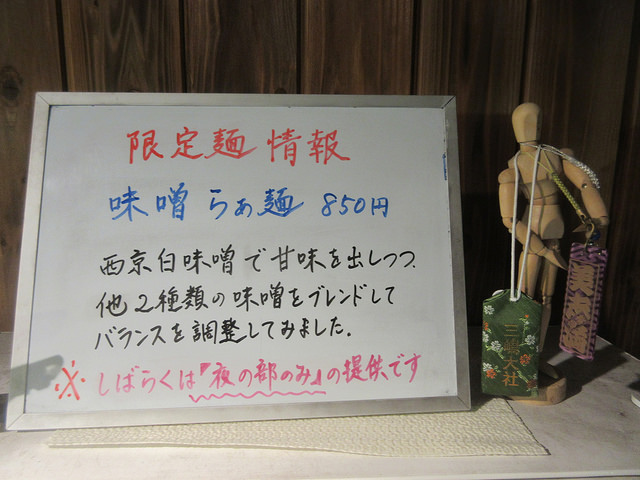 限定麺 情報
味噌 らぁ麺 850円
西京白味噌で甘味を出しつつ、
他2種類の味噌をブレンドして
バランスを調整してみました。
※しばらくは『夜の部のみ』の提供です
三嶋大社